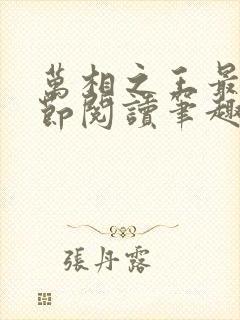 萬相之王最
節閱讀筆趣
張丹露